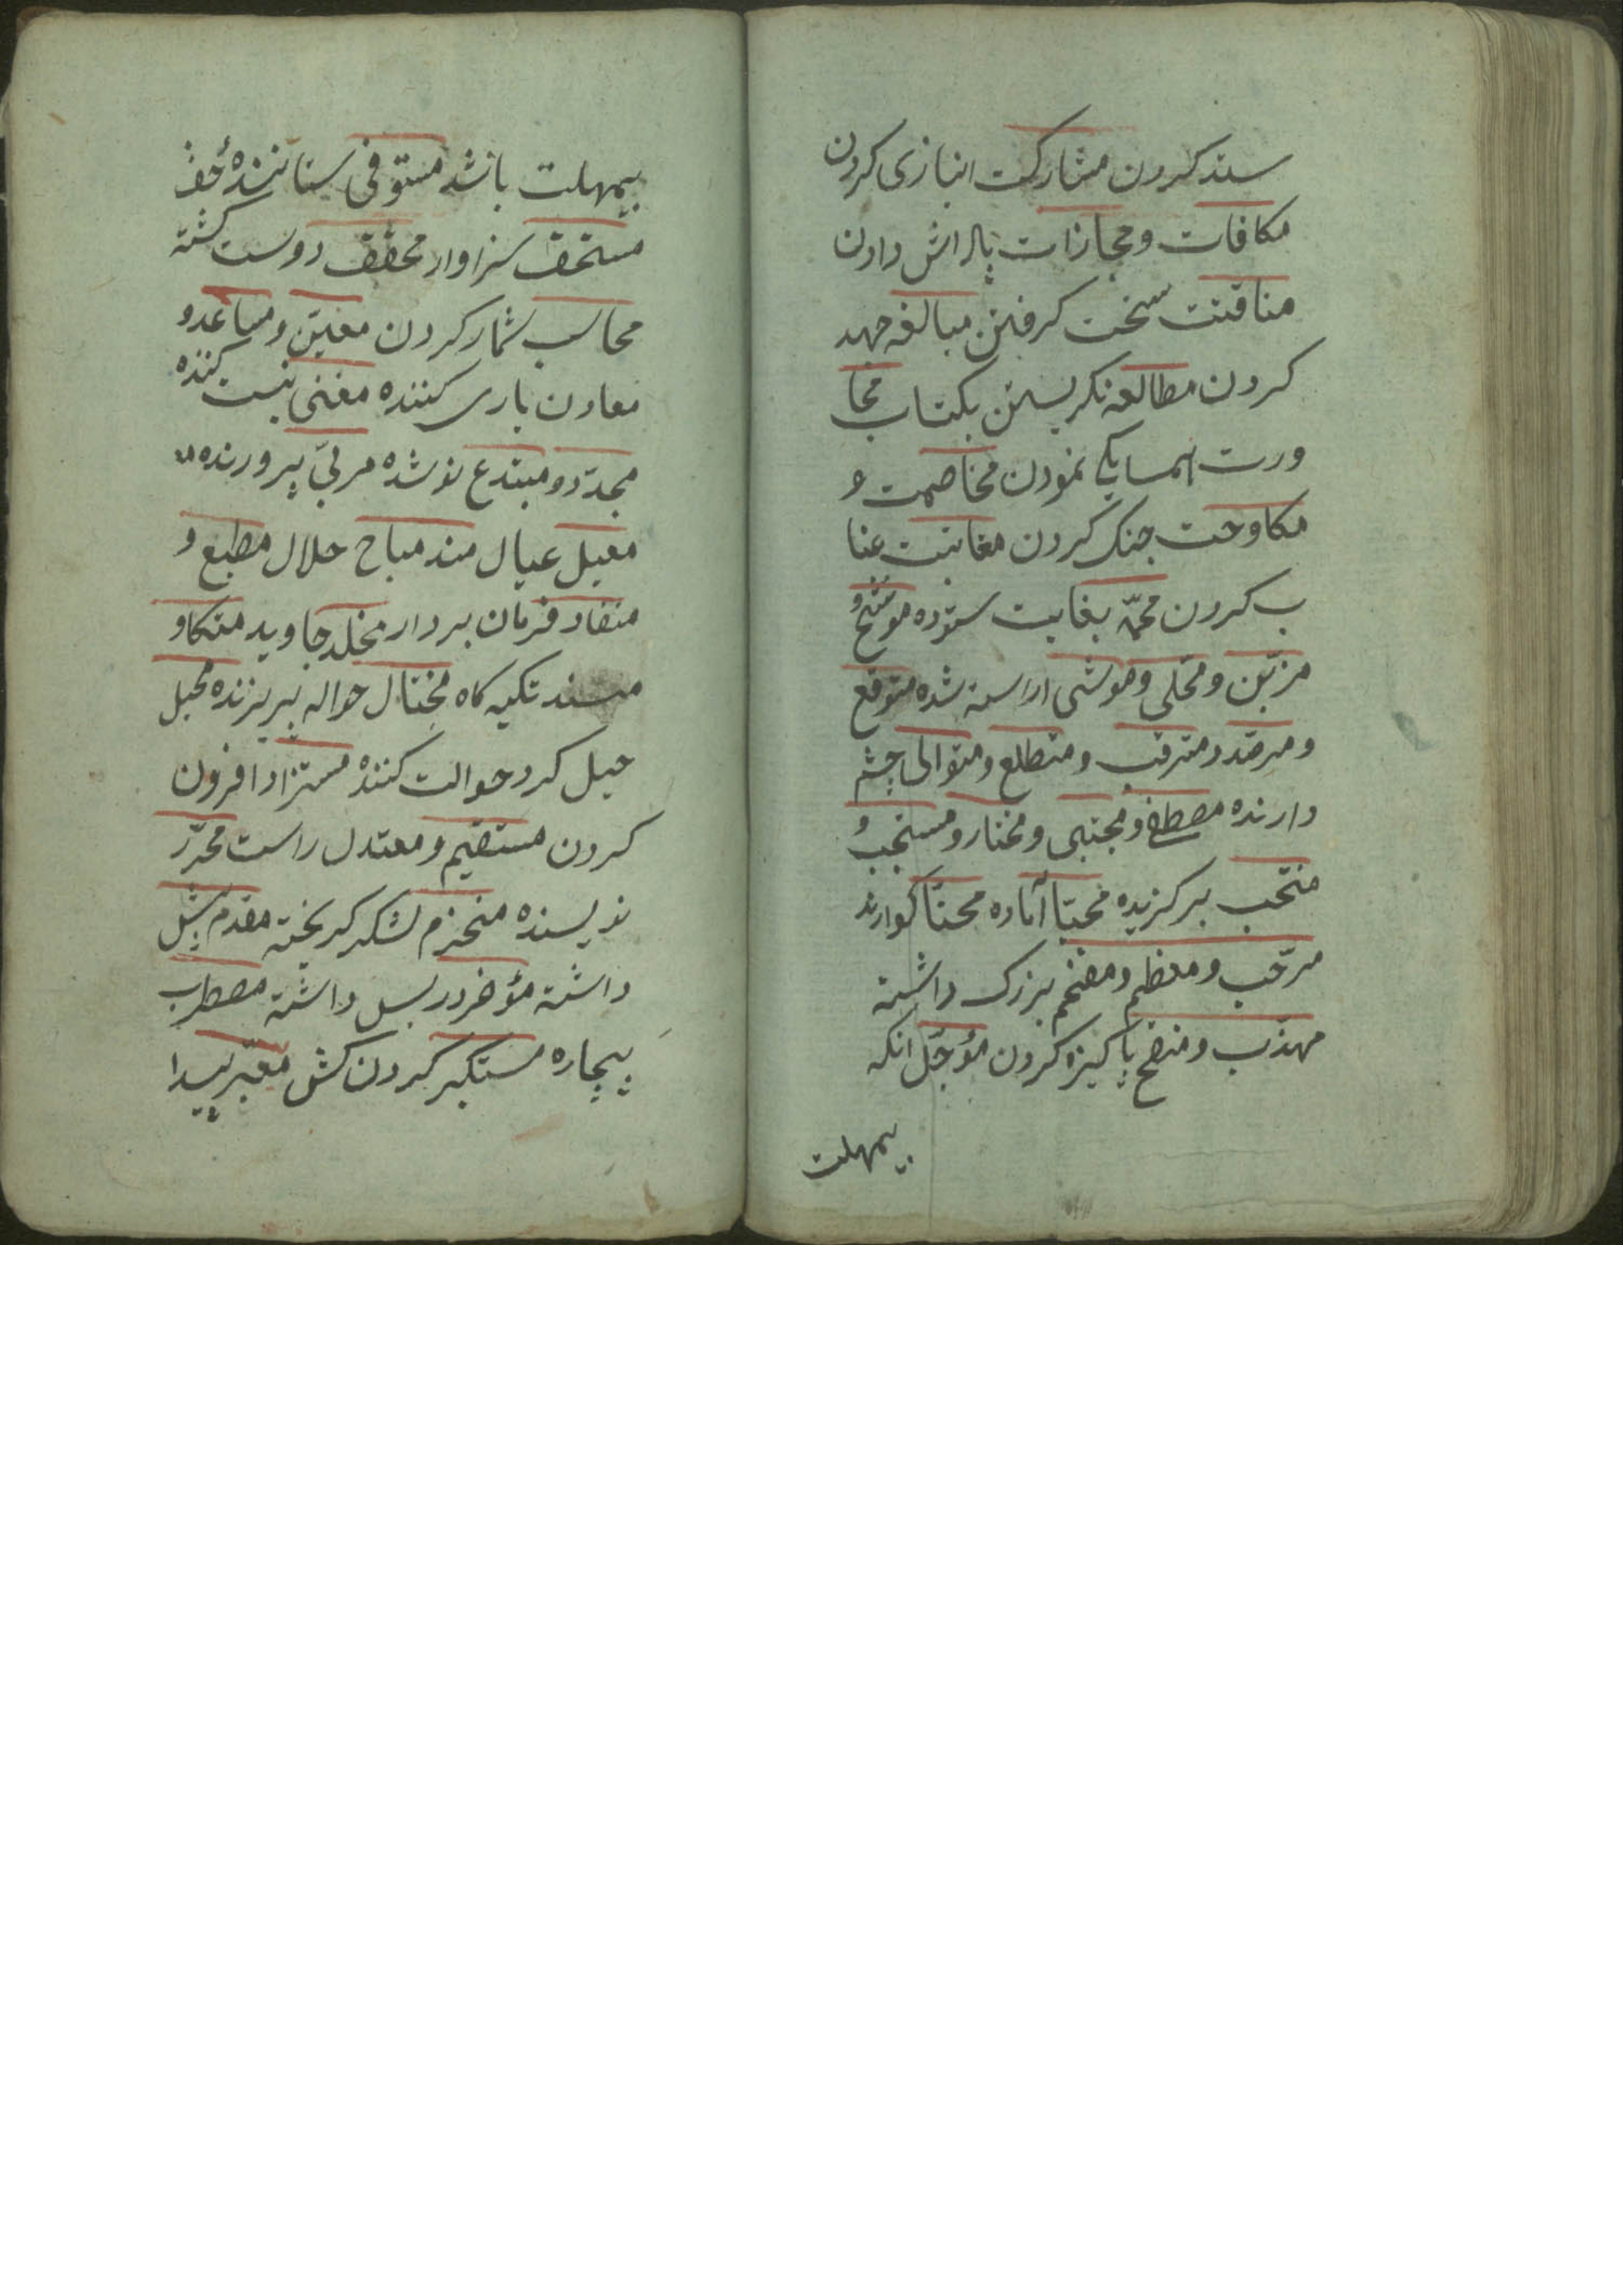 سند کردن مشارکت انبازی کردن
مکافات و مجازات پاداش دادن
مناقشت سخت کرفتن مبالغه جهد
کردن مطالعه نکریستن بکتاب مجا
ورت همسایکی نمودن مخاصمت و
مکاوحت جنک کردن معاتبت عتا
ب کردن محمد بغایت ستوده موشح و
مزین و محلی و موشی اراسته شده متوقع
و مرصد و مترقب و متطلع و متوالی چشم
دارنده مصطفی و مجتبی و مختار و مستجب و
منتخب برکزیده مهیا آماده مهنا کوارند
مرحب و معظم و مفخم بزرک داشته
مهذب و منقح پاکیزه کردن مؤجل انکه
بیمهلت
بیمهلت باشد مستوفی ستاننده حق
مستحق سزاوار محقق دوست کشته
محاسب شمار کردن معین و مساعد و
معاون یاری کننده مغنی نیست کننده
مجدد و مبتدع نو شده مربی پرورنده
معیل عیال مند مباح حلال مطیع و
منقاد فرمان بردار مخلد جاوید متکا و
مسند تکیه کاه محتال حواله پریرنده محیل
حیل کر و حوالت کننده مستزاد افزون
کردن مستقیم و معتدل راست محرر
نویسنده منحزم لشکر کریخته مقدم پیش
داشته مؤخر در پس داشته مضطرب
بیچاره مستکبر کردن کش معبر پیدا